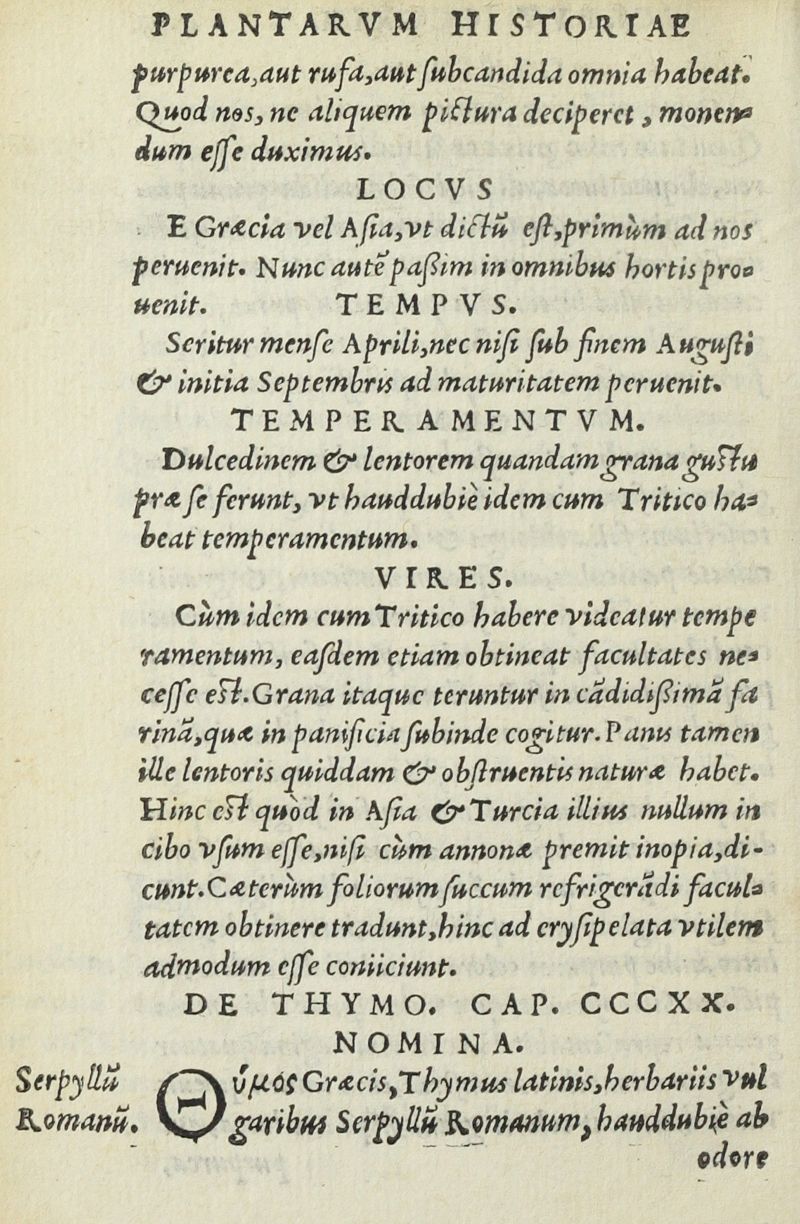 PLANTARVM HISTORIAE
purpurea,aut rufa,aut ſubcandida omnia habeat.
Quod nos, ne aliquem pictura deciperet, monen-
dum eſſe duximus.
LOCVS
E Græcia vel Aſia,vt dictū eſt,primùm ad nos
peruenit. Nunc autē paſsim in omnibus hortis pro-
uenit. TEMPVS.
Seritur menſe Aprili,nec niſi ſub finem Auguſti
& initia Septembris ad maturitatem peruenit.
TEMPERAMENTVM.
Dulcedinem & lentorem quandam grana guſtu
præ ſe ferunt, vt hauddubiè idem cum Tritico ha-
beat temperamentum.
VIRES.
Cùm idem cum Tritico habere videatur tempe
ramentum, eaſdem etiam obtineat facultates ne-
ceſſe eſt.Grana itaque teruntur in cādidiſsimā fa
rinā,quæ in panificia ſubinde cogitur.Panis tamen
ille lentoris quiddam & obſtruentis naturæ habet.
Hinc eſt quòd in Aſia & Turcia illius nullum in
cibo vſum eſſe,niſi cùm annonæ premit inopia,di-
cunt.Cæterùm foliorum ſuccum refrigerādi facul-
tatem obtinere tradunt,hinc ad eryſipelata vtilem
admodum eſſe coniiciunt.
DE THYMO. CAP. CCCXX.
NOMINA.
Serpyllū
Romanū.
Θύμος Græcis,Thymus latinis,herbariis vul
garibus Serpyllū Romanum,hauddubiè ab
odore